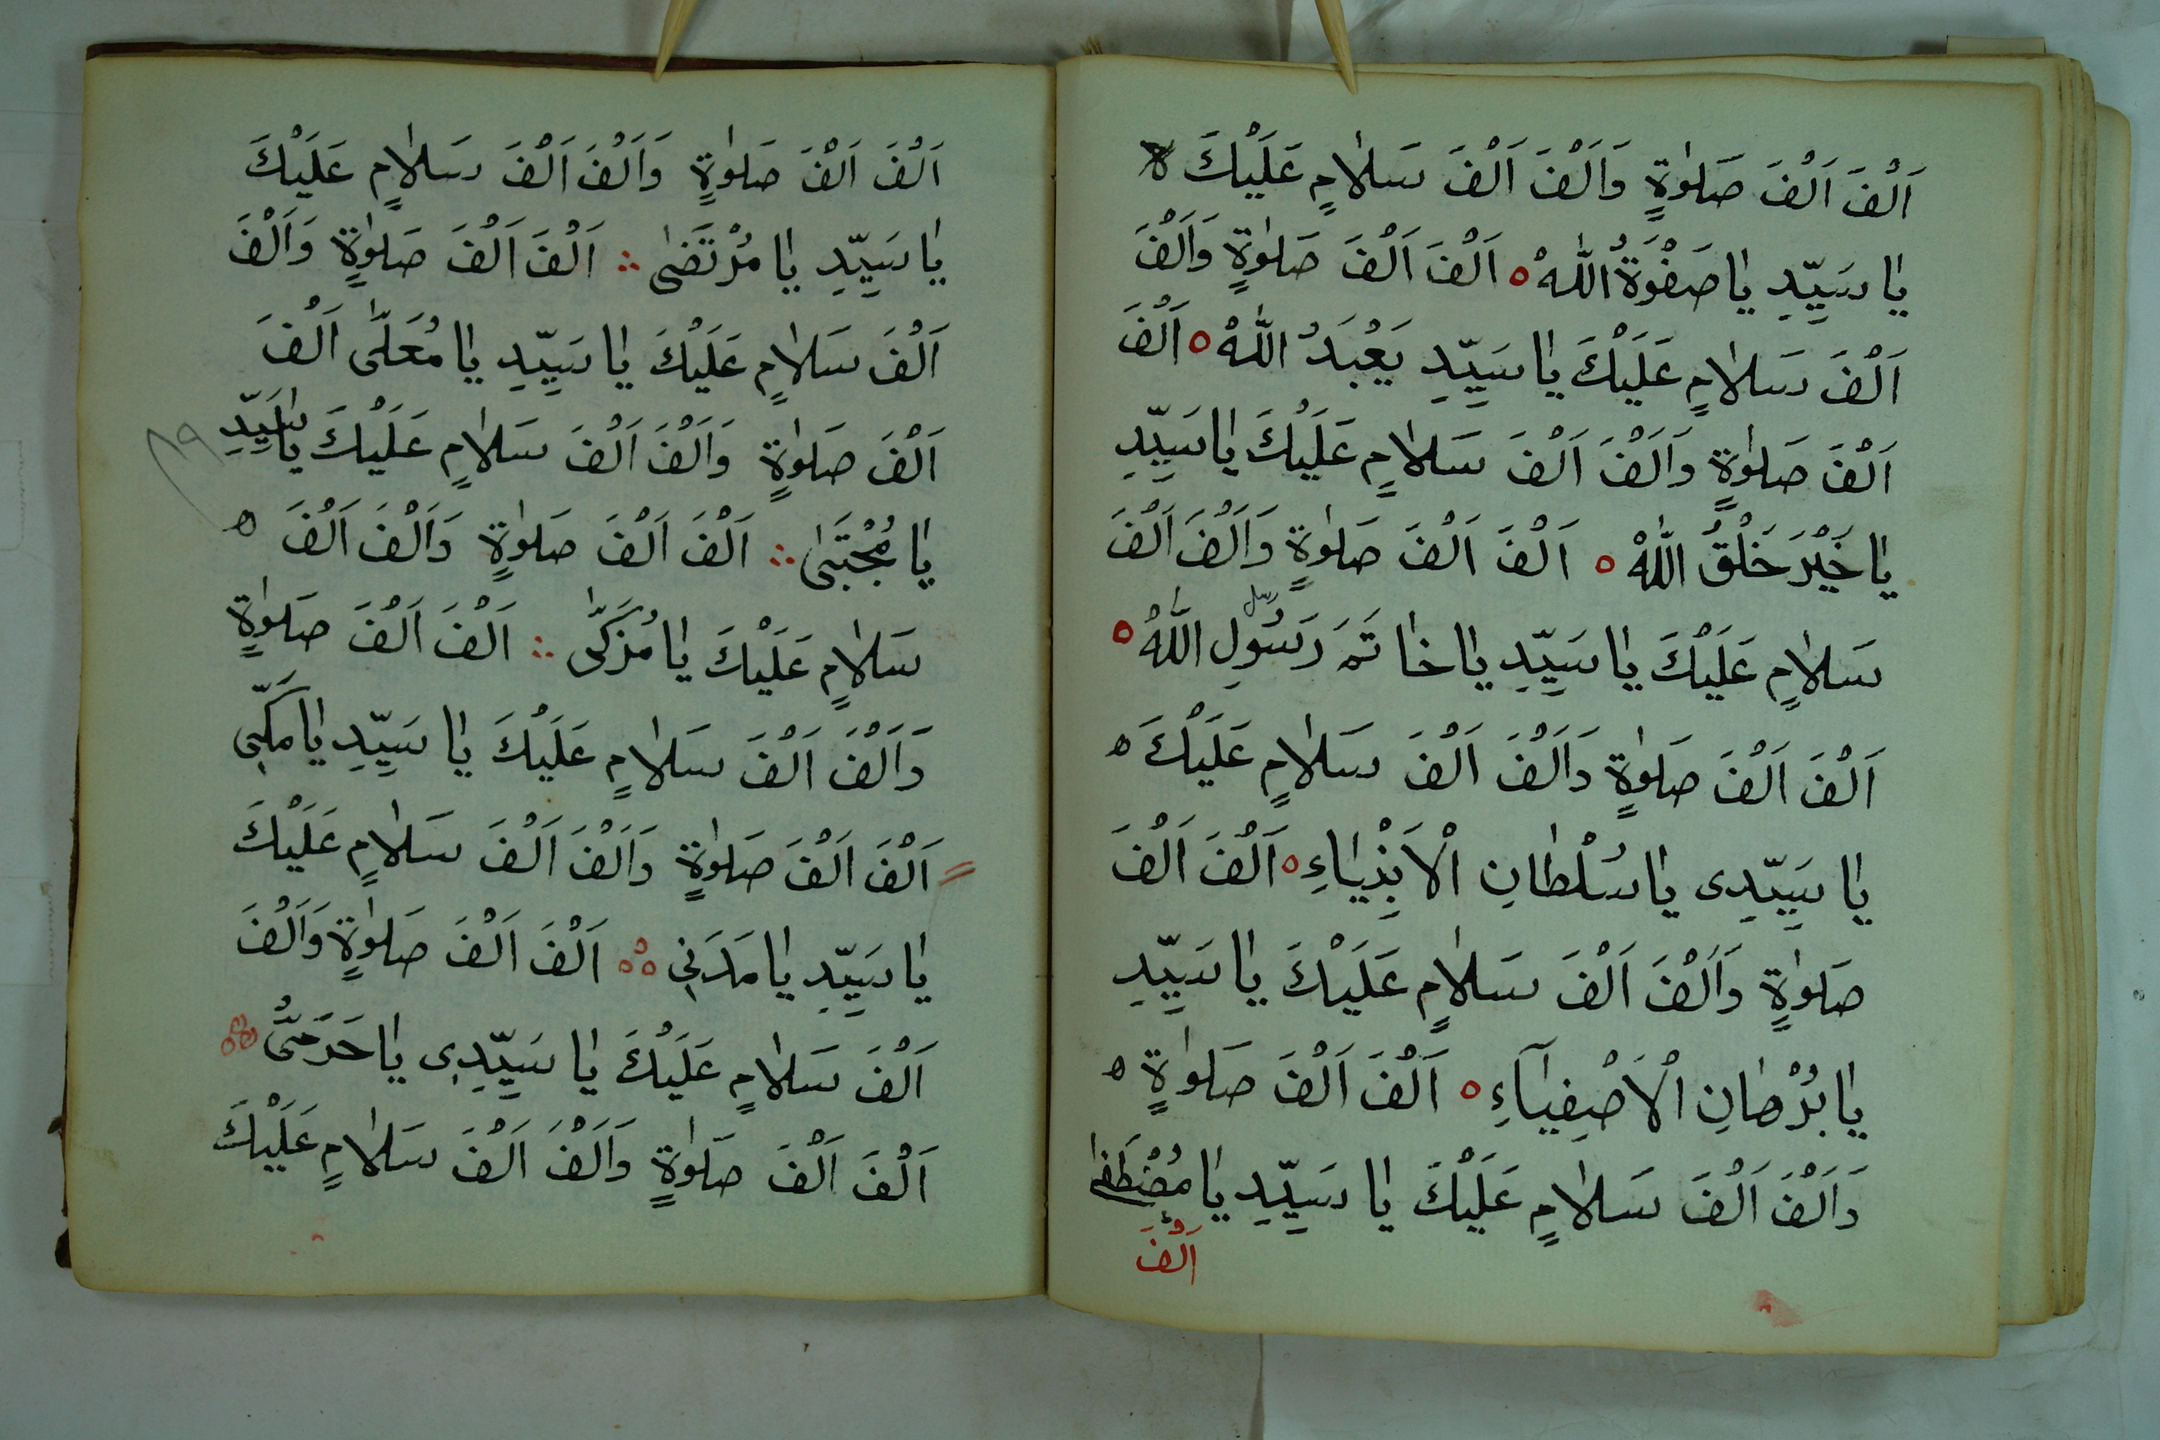 اَلْفَ اَلْفَ صَلٰوةٍ وَاَلْفَ اَلْفَ سَلَامٍ عَلَيْكَ ه
يَا سَيِّدِ يَا صَفْوَةُ اللّٰهْ ه اَلْفَ اَلْفَ صَلٰوةٍ وَاَلْفَ
اَلْفَ سَلَامٍ عَلَيْكَ يَا سَيِّدِ يَعْبَدُ اللّٰهْ ه اَلْفَ
اَلْفَ صَلٰوةٍ وَاَلْفَ اَلْفَ سَلَامٍ عَلَيْكَ يَا سَيِّدِ
يَا خَيْرَ خَلْقُ اللّٰهْ ه اَلْفَ اَلْفَ صَلٰوةٍ وَاَلْفَ اَلْفَ
سَلَامٍ عَلَيْكَ يَا سَيِّدِ يَا خَاتَمَ رَسُولِ اللّٰهْ ه
اَلْفَ اَلْفَ صَلٰوةٍ وَاَلْفَ اَلْفَ سَلَامٍ عَلَيْكَ ه
يَا سَيِّدِى يَا سُلْطَانِ الْاَنْبِيَاءِ ه اَلْفَ اَلْفَ
صَلٰوةٍ وَاَلْفَ اَلْفَ سَلَامٍ عَلَيْكَ يَا سَيِّدِ
يَا بُرْهَانِ الْاَصْفِيَآءِ ه اَلْفَ اَلْفَ صَلٰوةٍ ه
وَاَلْفَ اَلْفَ سَلَامٍ عَلَيْكَ يَا سَيِّدِ يَا مُصْطَفٰى
اَلْفَ
اَلْفَ اَلْفَ صَلٰوةٍ وَاَلْفَ اَلْفَ سَلَامٍ عَلَيْكَ
يَا سَيِّدِ يَا مُرْتَضٰى ∴ اَلْفَ اَلْفَ صَلٰوةٍ وَاَلْفَ
اَلْفَ سَلَامٍ عَلَيْكَ يَا سَيِّدِ يَا مُعَلّٰى اَلْفَ
اَلْفَ صَلٰوةٍ وَاَلْفَ اَلْفَ سَلَامٍ عَلَيْكَ يَا سَيِّدِ
يَا مُجْتَبٰى ∴ اَلْفَ اَلْفَ صَلٰوةٍ وَاَلْفَ اَلْفَ ه
سَلَامٍ عَلَيْكَ يَا مُزَكّٰى ∴ اَلْفَ اَلْفَ صَلٰوةٍ
وَاَلْفَ اَلْفَ سَلَامٍ عَلَيْكَ يَا سَيِّدِ يَا مَكِّىِ
اَلْفَ اَلْفَ صَلٰوةٍ وَاَلْفَ اَلْفَ سَلَامٍ عَلَيْكَ
يَا سَيِّدِ يَا مَدَنِى ∴ اَلْفَ اَلْفَ صَلٰوةٍ وَاَلْفَ
اَلْفَ سَلَامٍ عَلَيْكَ يَا سَيِّدِى يَا حَرَمِىُّ
اَلْفَ اَلْفَ صَلٰوةٍ وَاَلْفَ اَلْفَ سَلَامٍ عَلَيْكَ